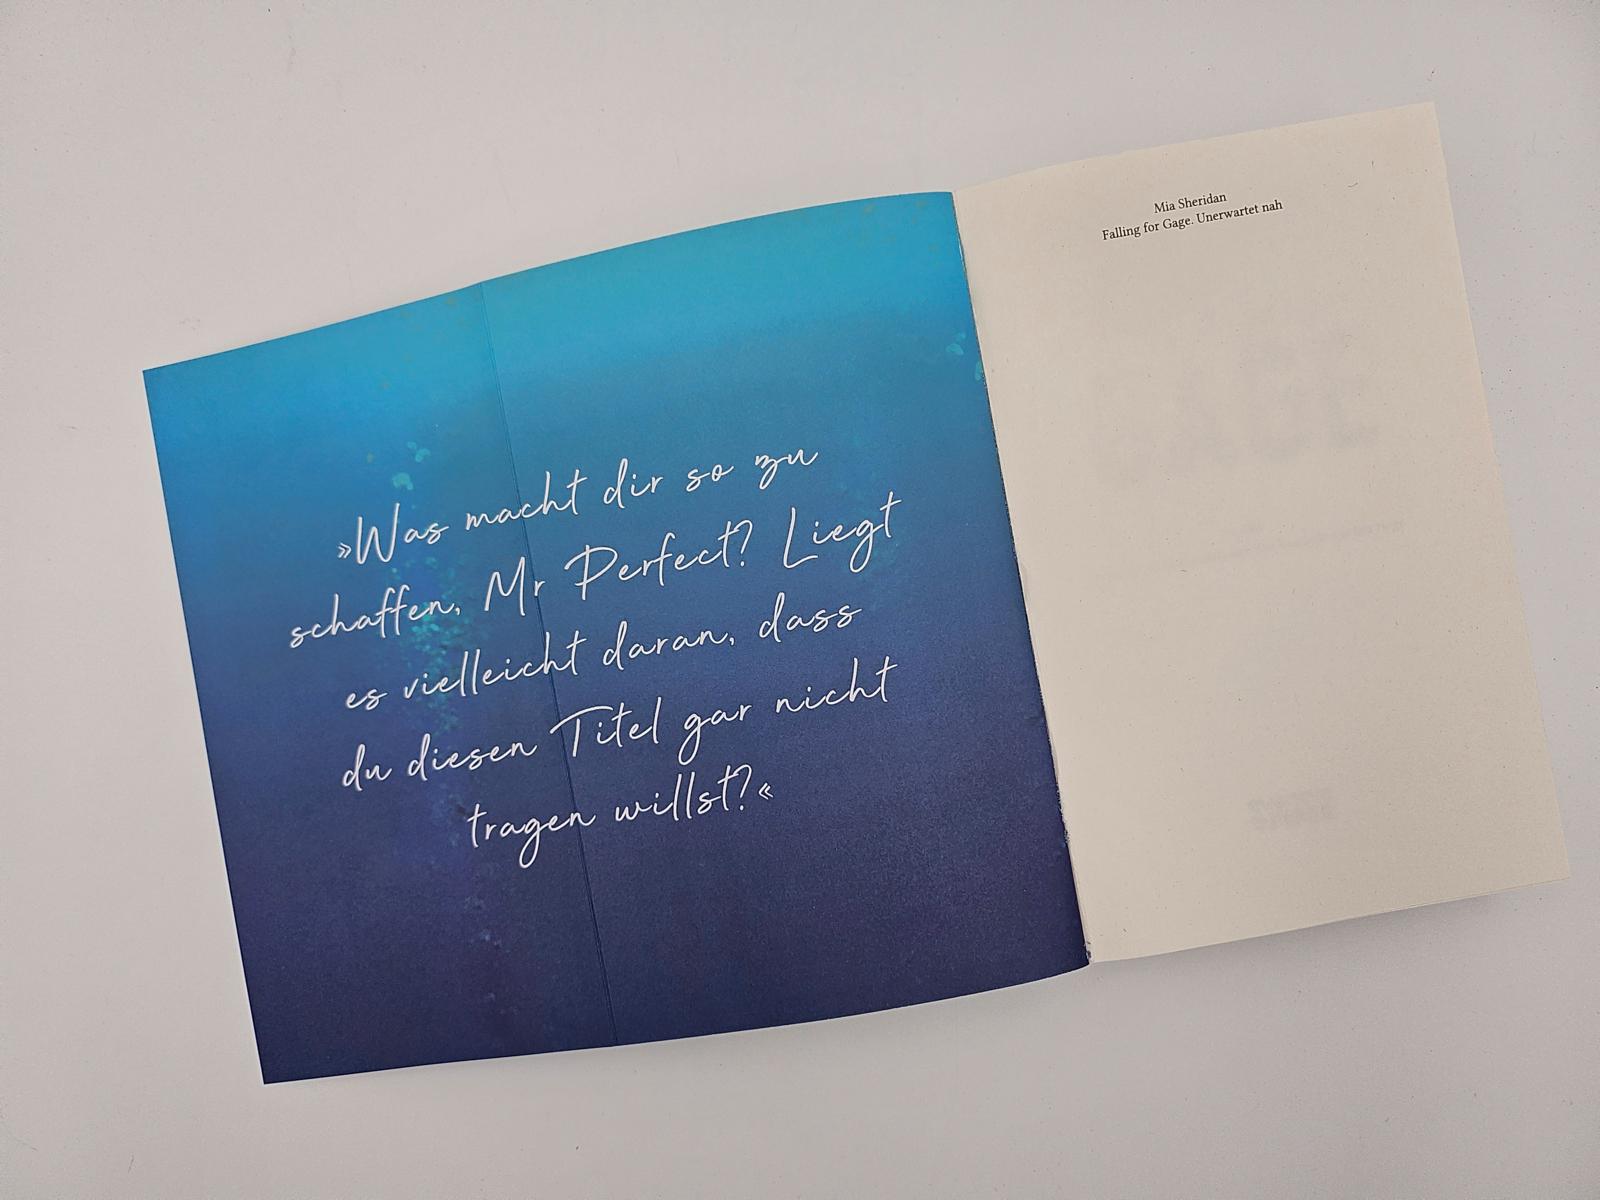 »Was macht dir so zu
schaffen, Mr Perfect? Liegt
es vielleicht daran, dass
du diesen Titel gar nicht
tragen willst?«
Mia Sheridan
Falling for Gage. Unerwartet nah